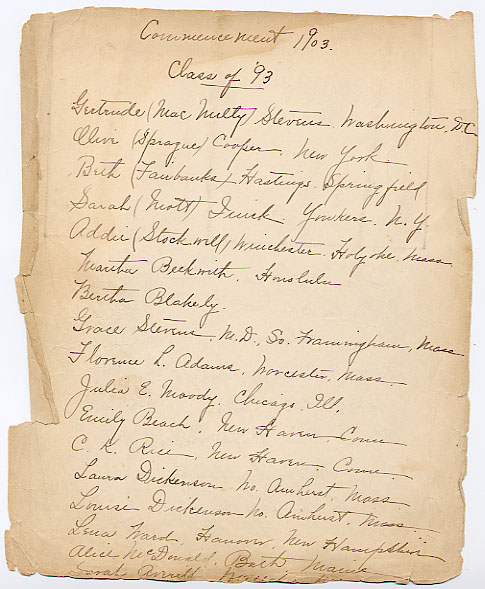 Commencement 1903.
Class of '93
Gertrude (Mac Nulty) Stevens. Washington, D.C.
Olive (Sprague) Cooper. New York
Beth (Fairbanks) Hastings. Springfield
Sarah (Mott) Yonkers. N.Y.
Addie (Stockwell) Winchester. Holyoke, Mass
Martha Beckwith. Honolulu
Bertha Blakely.
Grace Stevens, M.D., So. Framingham, Mass
Florence L. Adams. Worcester, Mass
Julia E. Moody. Chicago, Ill.
Emily Beach. New Haven. Conn
C. K. Rice, New Haven. Conn.
Laura Dickenson No. Amherst. Mass.
Louise Dickenson No. Amherst. Mass.
Lena Ward. Hanover, New Hampshire
Alice McDonald. Bath. Maine
Sarah Averill